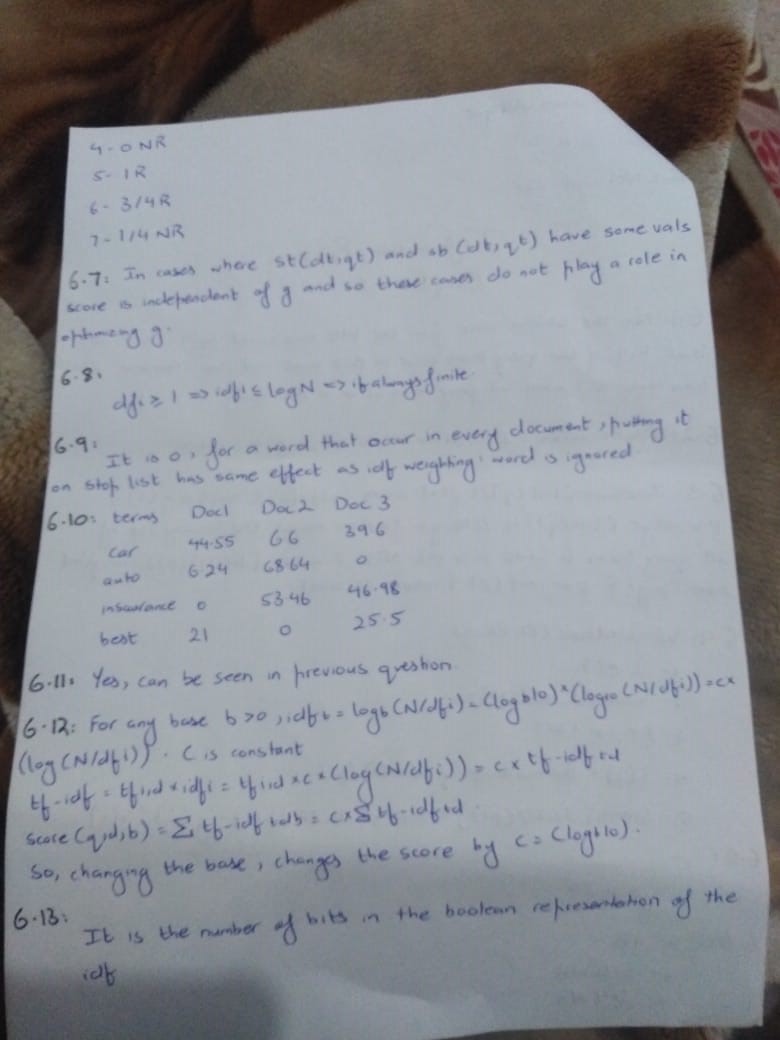 4 - 0 NR
5 - 1 R
6 - 3/4 R
7 - 1/4 NR
6.7: In cases where st(dt,qt) and sb(dt,qt) have some vals
score is independent of g and so these cases do not play a role in
optimizing g.
6.8:
dfi ≥ 1 => idfi ≤ log N => if always finite.
6.9:
It is 0, for a word that occur in every document, putting it
on stop list has same effect as idf weighting: word is ignored
6.10: terms Doc1 Doc 2 Doc 3
car 44.55 66 39.6
auto 6.24 68.64 0
insurance 0 53.46 46.98
best 21 0 25.5
6.11: Yes, can be seen in previous question.
6.12: For any base b >0, idfb = logb (N/dfi) = (logb10) * (log10 (N/dfi)) = c*
(log (N/dfi)). C is constant
tf-idf = tfi,d x idfi = tfi,d x c x (log(N/dfi)) = c x tf-idf t,d
score (q,d,b) = Σ tf-idf t,db = c x Σ tf-idf t,d.
So, changing the base, changes the score by c = (logb10).
6.13:
It is the number of bits in the boolean representation of the
idf